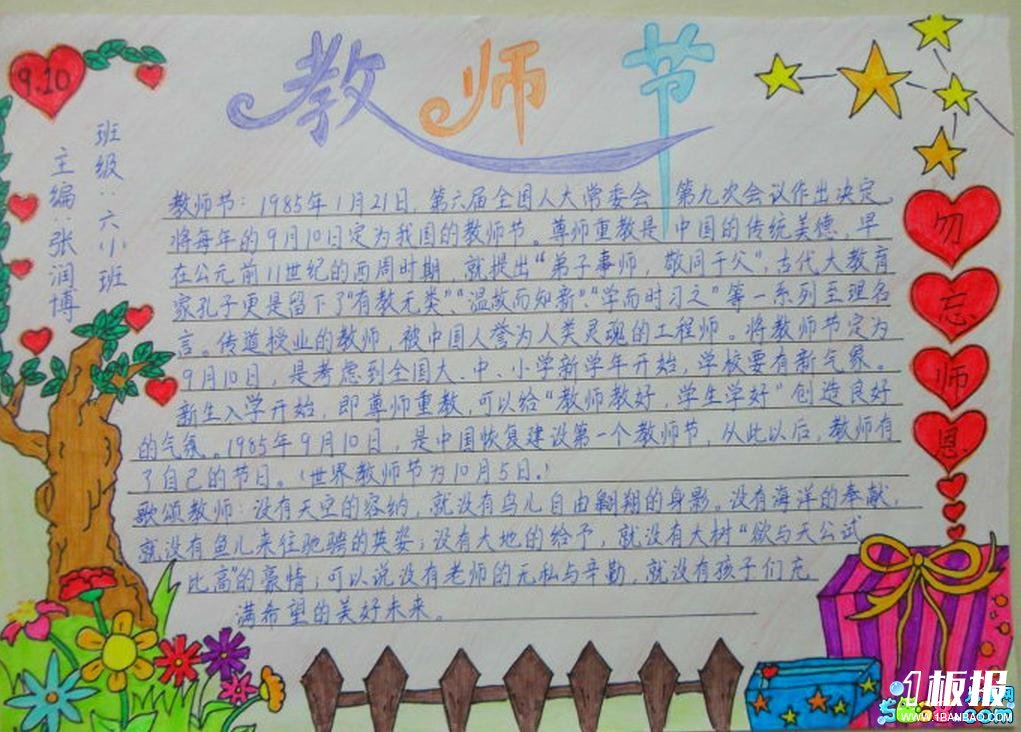 9.10
教师节
班级：六小班
主编：张润博
教师节：1985年1月21日，第六届全国人大常委会 第九次会议作出决定，
将每年的9月10日定为我国的教师节。尊师重教是中国的传统美德，早
在公元前11世纪的西周时期，就提出“弟子事师，敬同于父”，古代大教育
家孔子更是留下了“有教无类”、“温故而知新”、“学而时习之”等一系列至理名
言。传道授业的教师，被中国人誉为人类灵魂的工程师。将教师节定为
9月10日，是考虑到全国大、中、小学新学年开始，学校要有新气象。
新生入学开始，即尊师重教，可以给“教师教好，学生学好”创造良好
的气氛。1985年9月10日，是中国恢复建设第一个教师节，从此以后，教师有
了自己的节日。（世界教师节为10月5日。）
歌颂教师：没有天空的容纳，就没有鸟儿自由翱翔的身影。没有海洋的奉献，
就没有鱼儿来往驰骋的英姿；没有大地的给予，就没有大树“欲与天公试
比高”的豪情；可以说没有老师的无私与辛勤，就没有孩子们充
满希望的美好未来。
勿
忘
师
恩
1板报
WWW.1BANBAO.COM